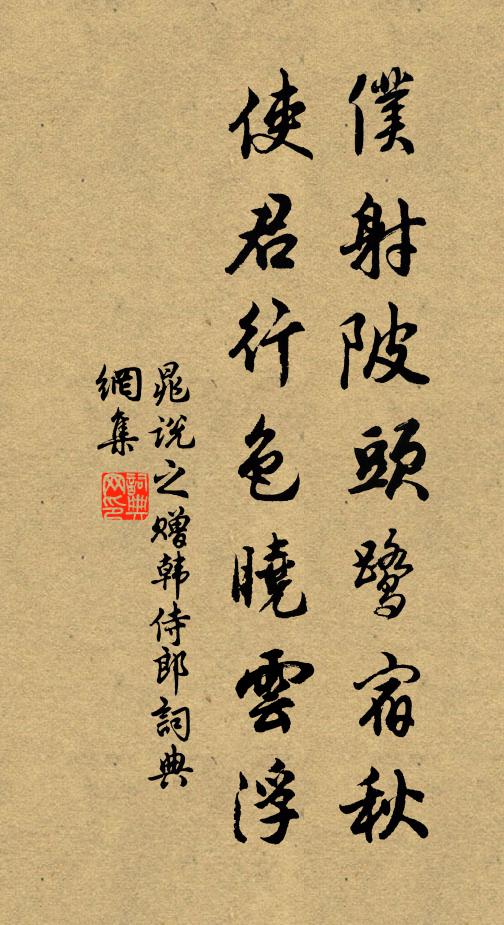 僕射陂頭鷺宿秋
使君行色曉雲浮
晁說之贈韩侍郎詞典
網集
詞典
网印